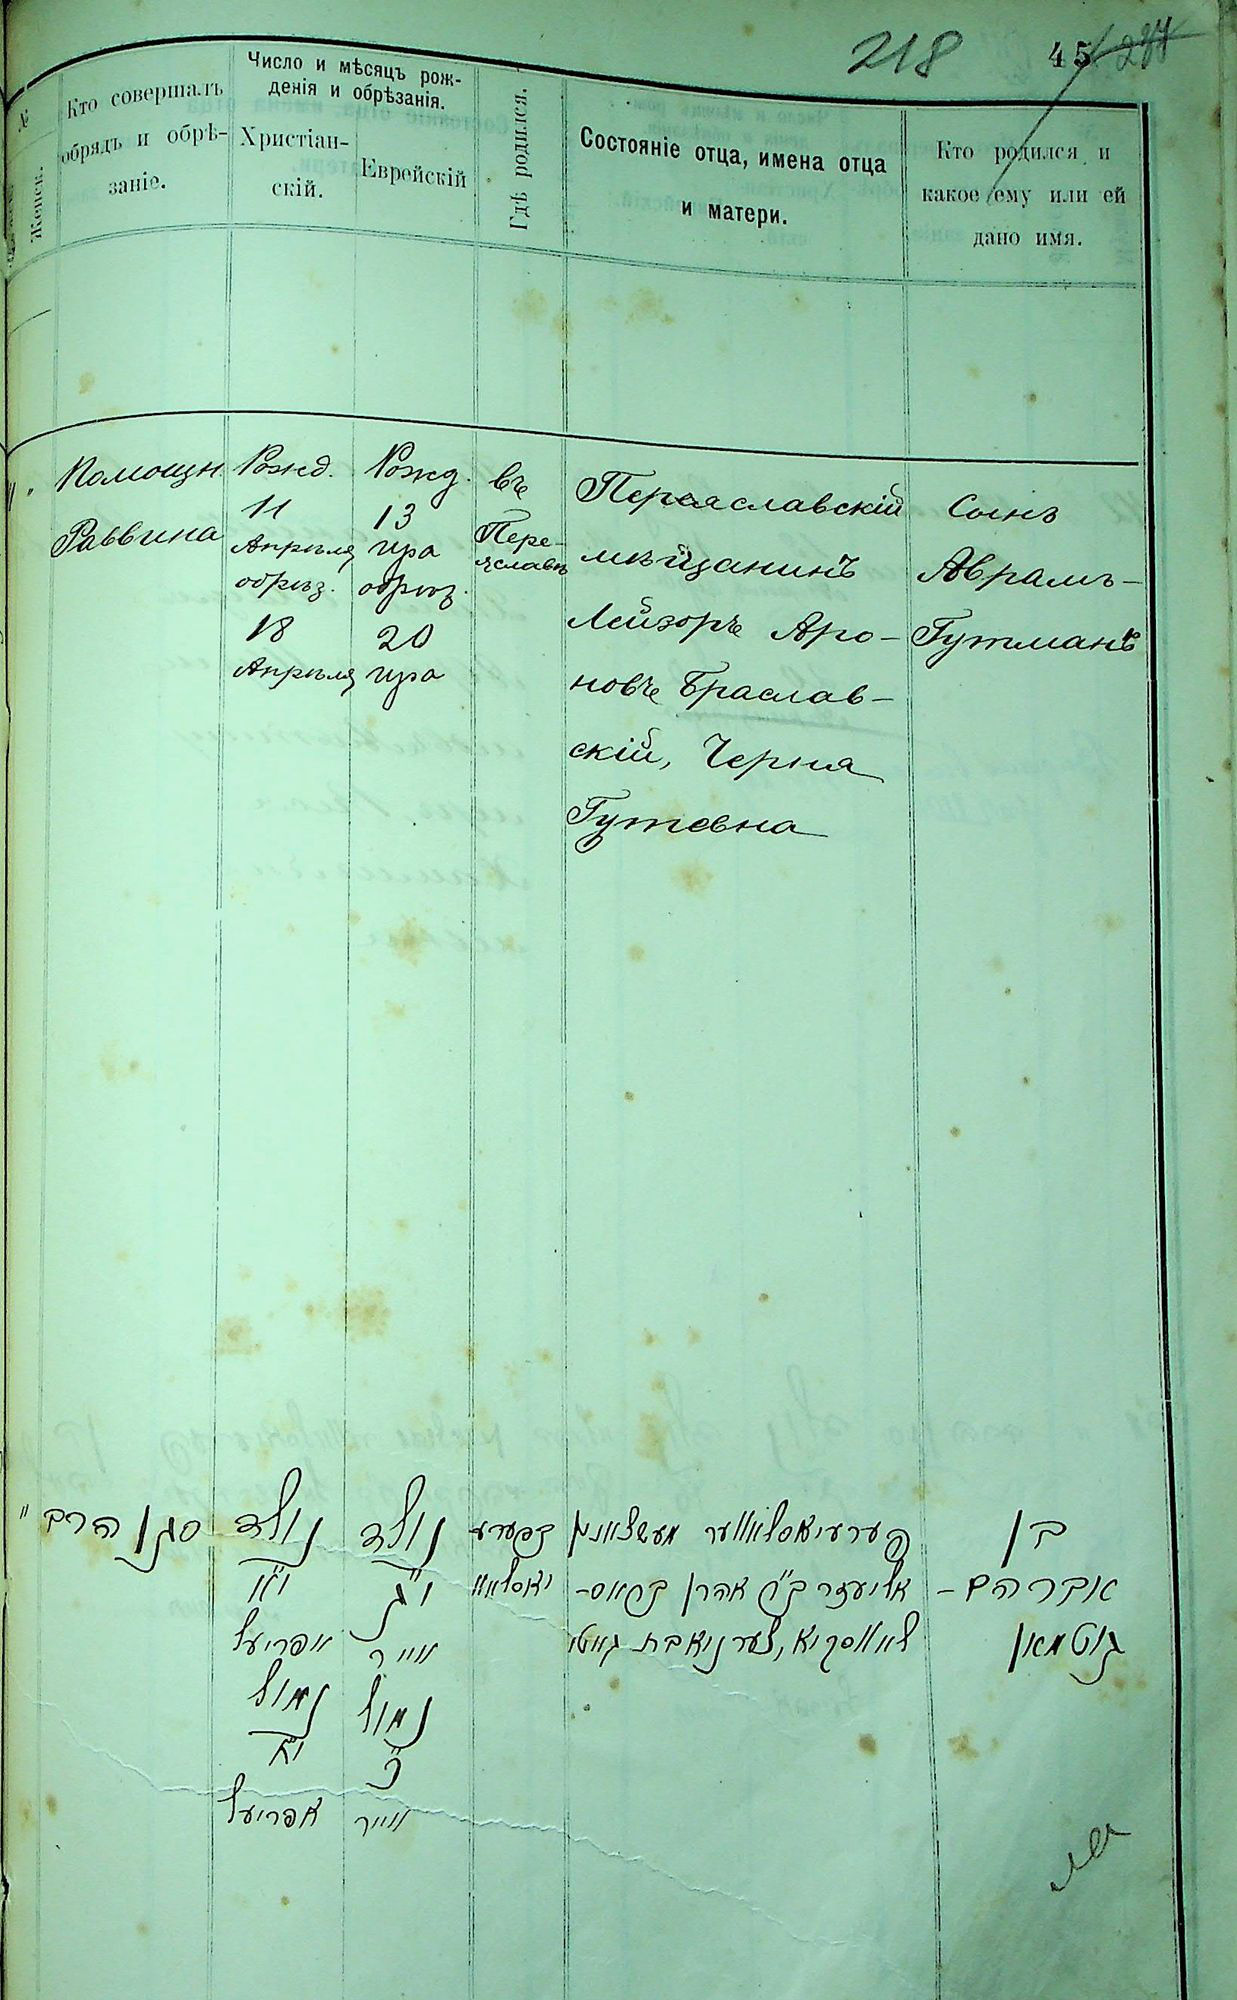 218
45
244
№
Женск.
Кто совершалъ
обрядъ и обрѣ-
заніе.
Число и мѣсяцъ рож-
денія и обрѣзанія.
Христіан-
скій.
Еврейскій
Гдѣ родился.
Состояніе отца, имена отца
и матери.
Кто родился и
какое ему или ей
дано имя.
Помощн.
Раввина
Рожд.
11
Апрѣля
обрѣз.
18
Апрѣля
Рожд.
13
Ира
обрѣз.
20
Ира
въ
Пере-
яславѣ
Переяславскій
мѣщанинъ
Лейзоръ Аро-
новъ Браслав-
скій, Черна
Гутовна
Сынъ
Аврамъ-
Гутманъ
סגן הרב
נולד
י״א
אפריעל
נמול
י״ח
אפריעל
נולד
י״ג
אייר
נמול
כ׳
אייר
בפערע
יאסלאוו
פערעיאסלאווער מעשצאנין
אליעזר ב״ר אהרן בראס-
לאווסקיא, צערניא בת גוטו
בן
אברהם-
גוטמאן